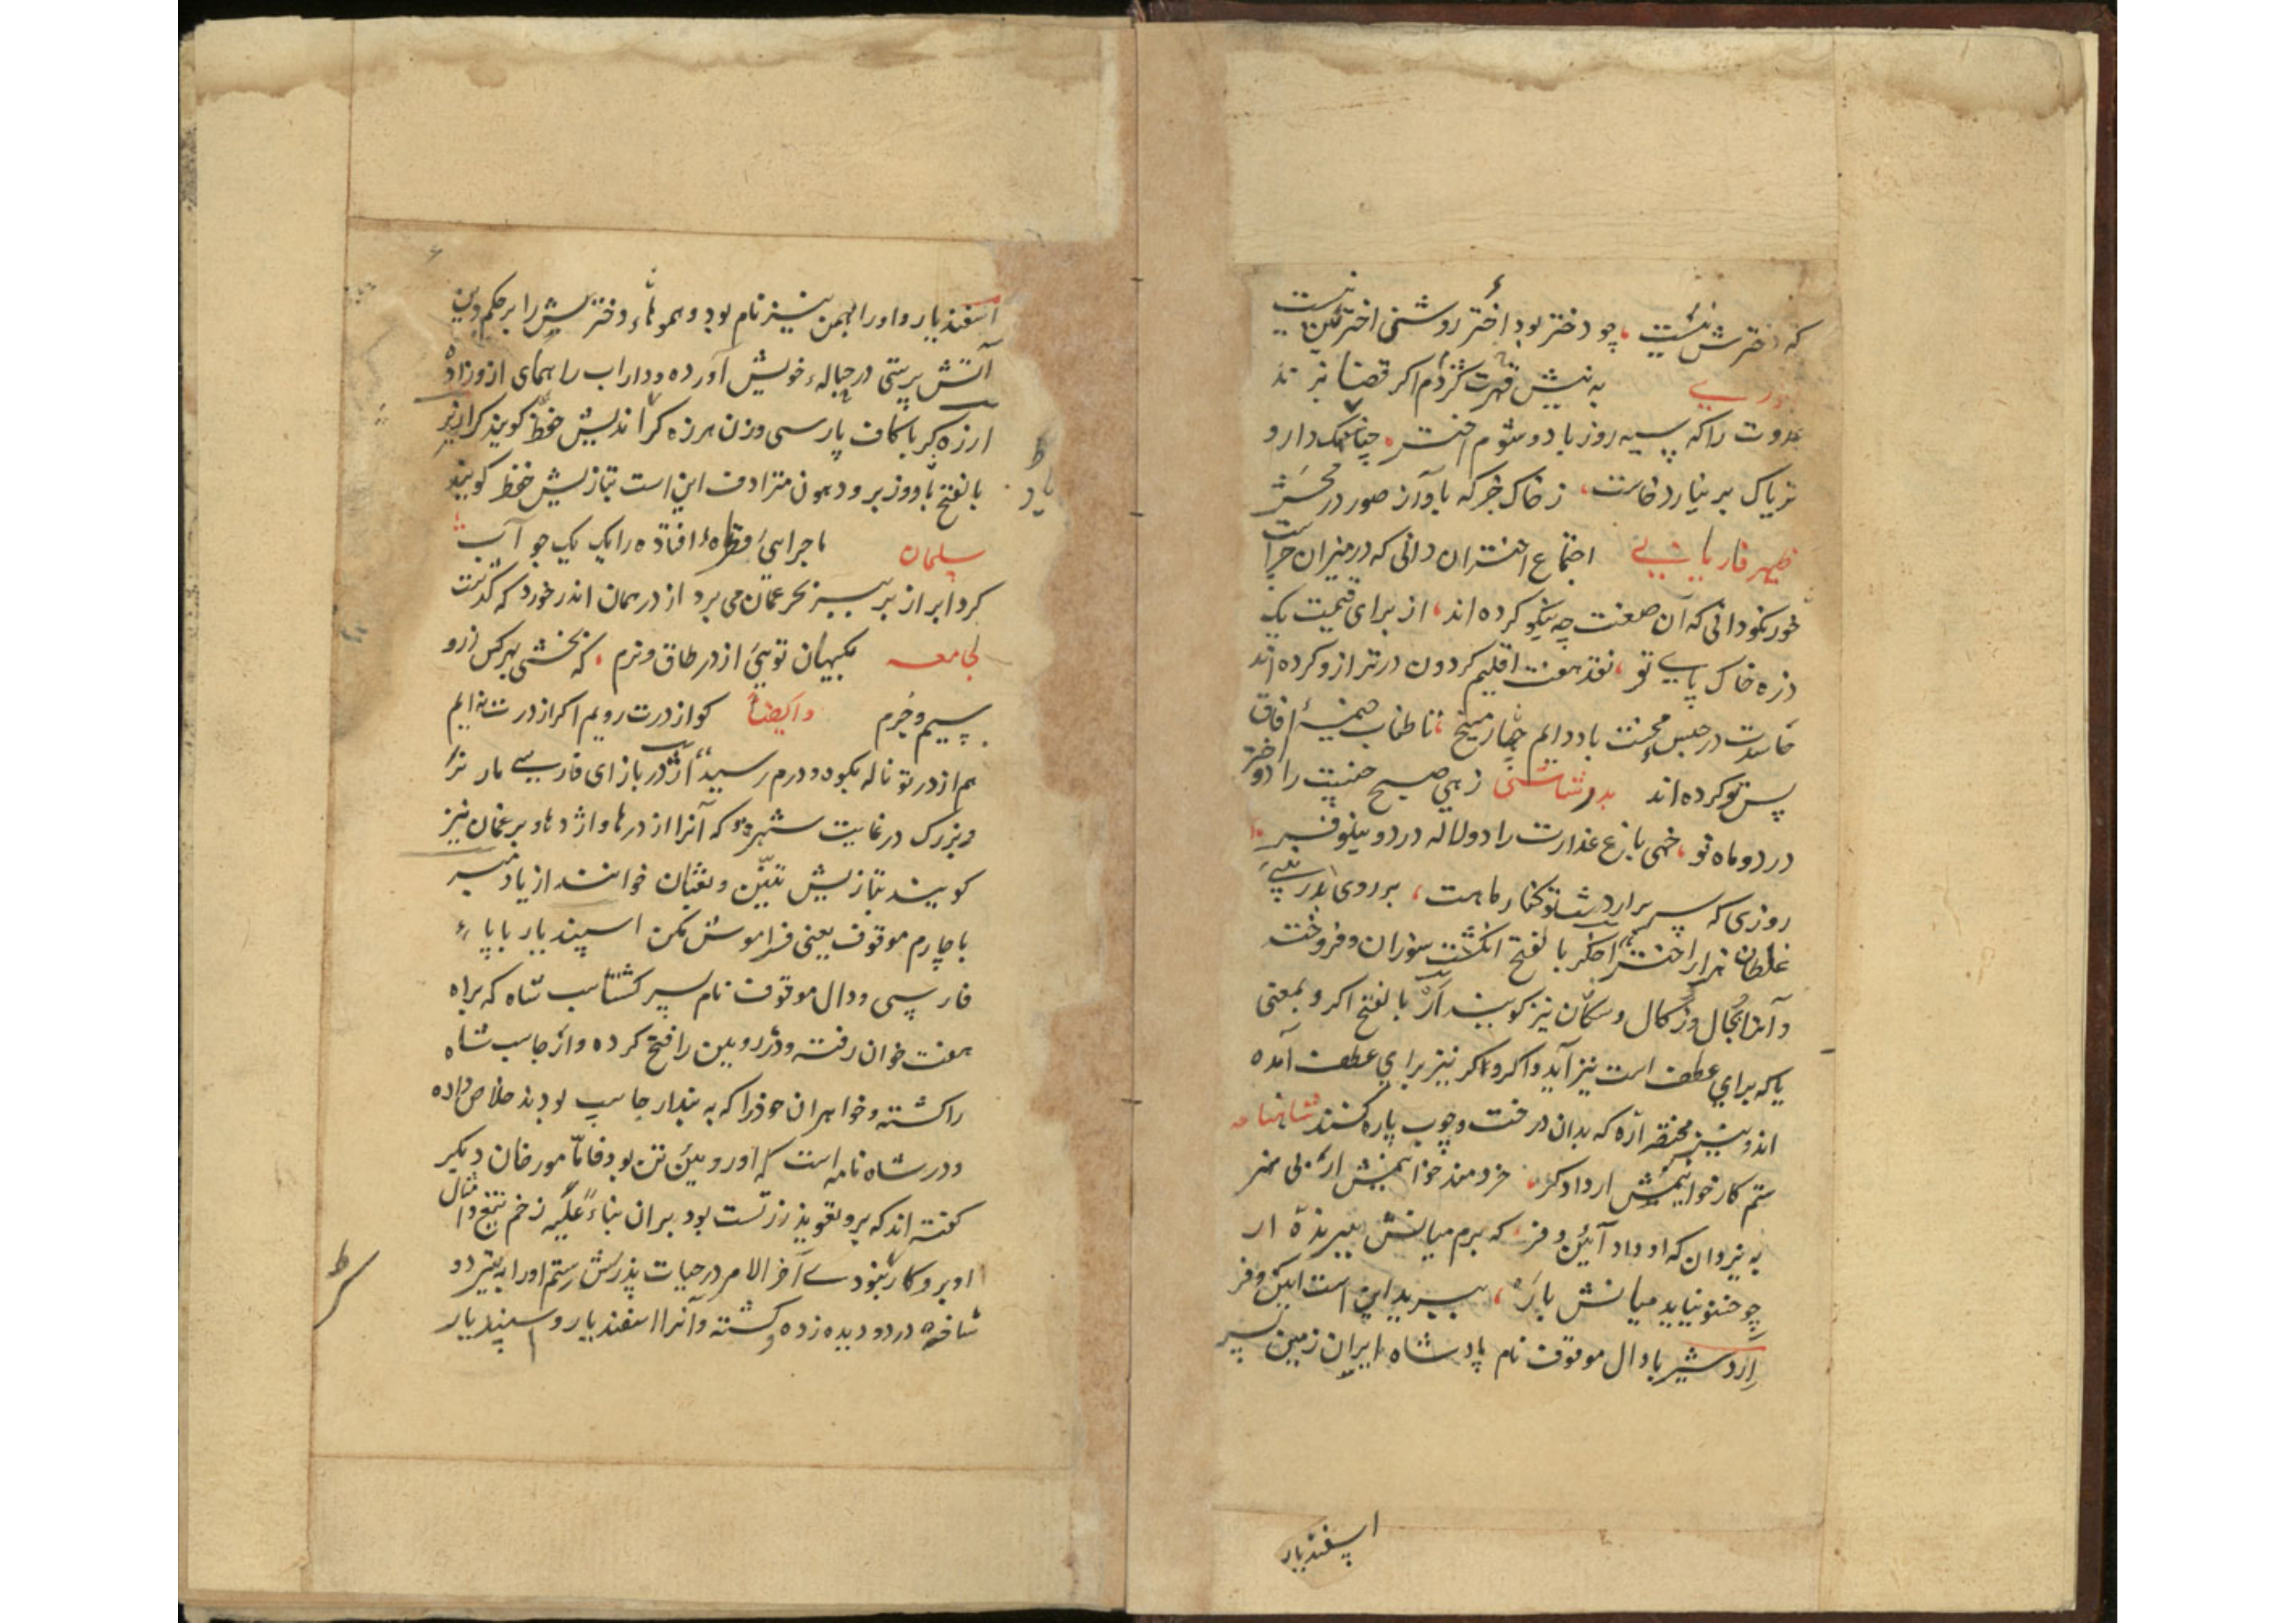 که دخترش نیست چو دختر بود اختر روشنی اخترش نیست
به نیش قهرت گژدم اگر قضا بزند
عدوت را که سیه روز باد و شوم اختر چنانکه دارو
تریاک بر نیارد خاست ز خاک جز که بآواز صور در محشر
ظهیر فاریابی اجتماع اختران دانی که در میزان چراست
خود نکو دانی که آن صنعت چه نیکو کرده اند از برای قیمت یک
ذره خاک پای تو نقد هفت اقلیم گردون در ترازو کرده اند
حاسدت در حبس محنت باد دایم چار میخ تا طناب خیمهٔ آفاق
پس تو کرده اند بدر شاشی زهی صبح جبینت را دو اختر
در دو ماه تو خهی باغ عذارت را دو لاله در دو نیلوفر
روزی که سر برارد شب تو کنار ماهت بر روی
غلطان هزار اختر اخگر با لفتح انگشت سوزان و فروخته
و آنرا بجال و ژگال و سکان نیز گویند ار بالفتح اگر و بمعنی
یا که برای عطف است نیز آید و اگر و مگر نیز برای عطف آمده
اند و نیز مختصر ارّه که بدان درخت و چوب پاره کنند شاهنامه
ستم کار خوانیمش ار دادگر خردمند خوانیمش ار بی هنر
به یزدان که او داد آئین و فر که برم میانش ببرنده ار
چو خستو نیاید میانش باره ببرید این است آیین و فر
اردشیر با دال موقوف نام پادشاه ایران زمین پسر
اسپندیار
اسفندیار و او را بهمن نیز نام بود و همو همای دختر خویش را بر حکم دین
آتش پرستی در حباله خویش آورده و داراب را همای ازو زاده
ارزه گر با کاف پارسی وزن هرزه گر اندیش خوانند گویند
بالفتح با دو زبر و دهون مترادف این است بتازیش حفظ گویند
یاد
سلمان ماجرایی قطرهٔ افتاده را یک یک جو آب
کرد ابر از بر ببر بحر عمان می برد از در همان اندر خورد که گذشت
لجامعه بکیهان تویی از در طاق و ترم که بخشی بهرکس زرو
سیم و خرم و ایضا کو از درت رویم اگر از درت نه ایم
هم از در تو ناله بکوه و درم رسید اژدر با زای فارسی مار نر
و بزرگ در غایت شهره که آنرا اژدرها و اژدها و برغمان نیز
گویند بتازیش تنین و ثعبان خوانند از یاد مبر
با چارم موقوف یعنی فراموش مکن اسپندیار با پاء
فارسی و دال موقوف نام پسر گشتاسب شاه که براه
هفت خوان رفته و دژ روبین را فتح کرده و ارجاسب شاه
را کشته و خواهران خود را که به بند ارجاسپ بودند خلاص داده
و در شاه نامه است که او رویین تن بود فاما مورخان دیگر
گفته اند که برو تعویذ زرتشت بود بران بناء علیه زخم تیغ و امثال
او برو کار نبودے آخر الامر در حیات پدرش رستم او را به تیر دو
شاخه در دو دیده زده و کشته و آنرا اسفندیار و سپندیار